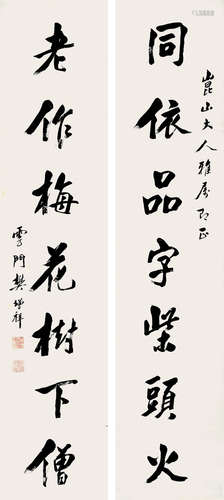 崑山大人雅屬即正
同依品字柴頭火
老作梅花樹下僧
雲門樊增祥